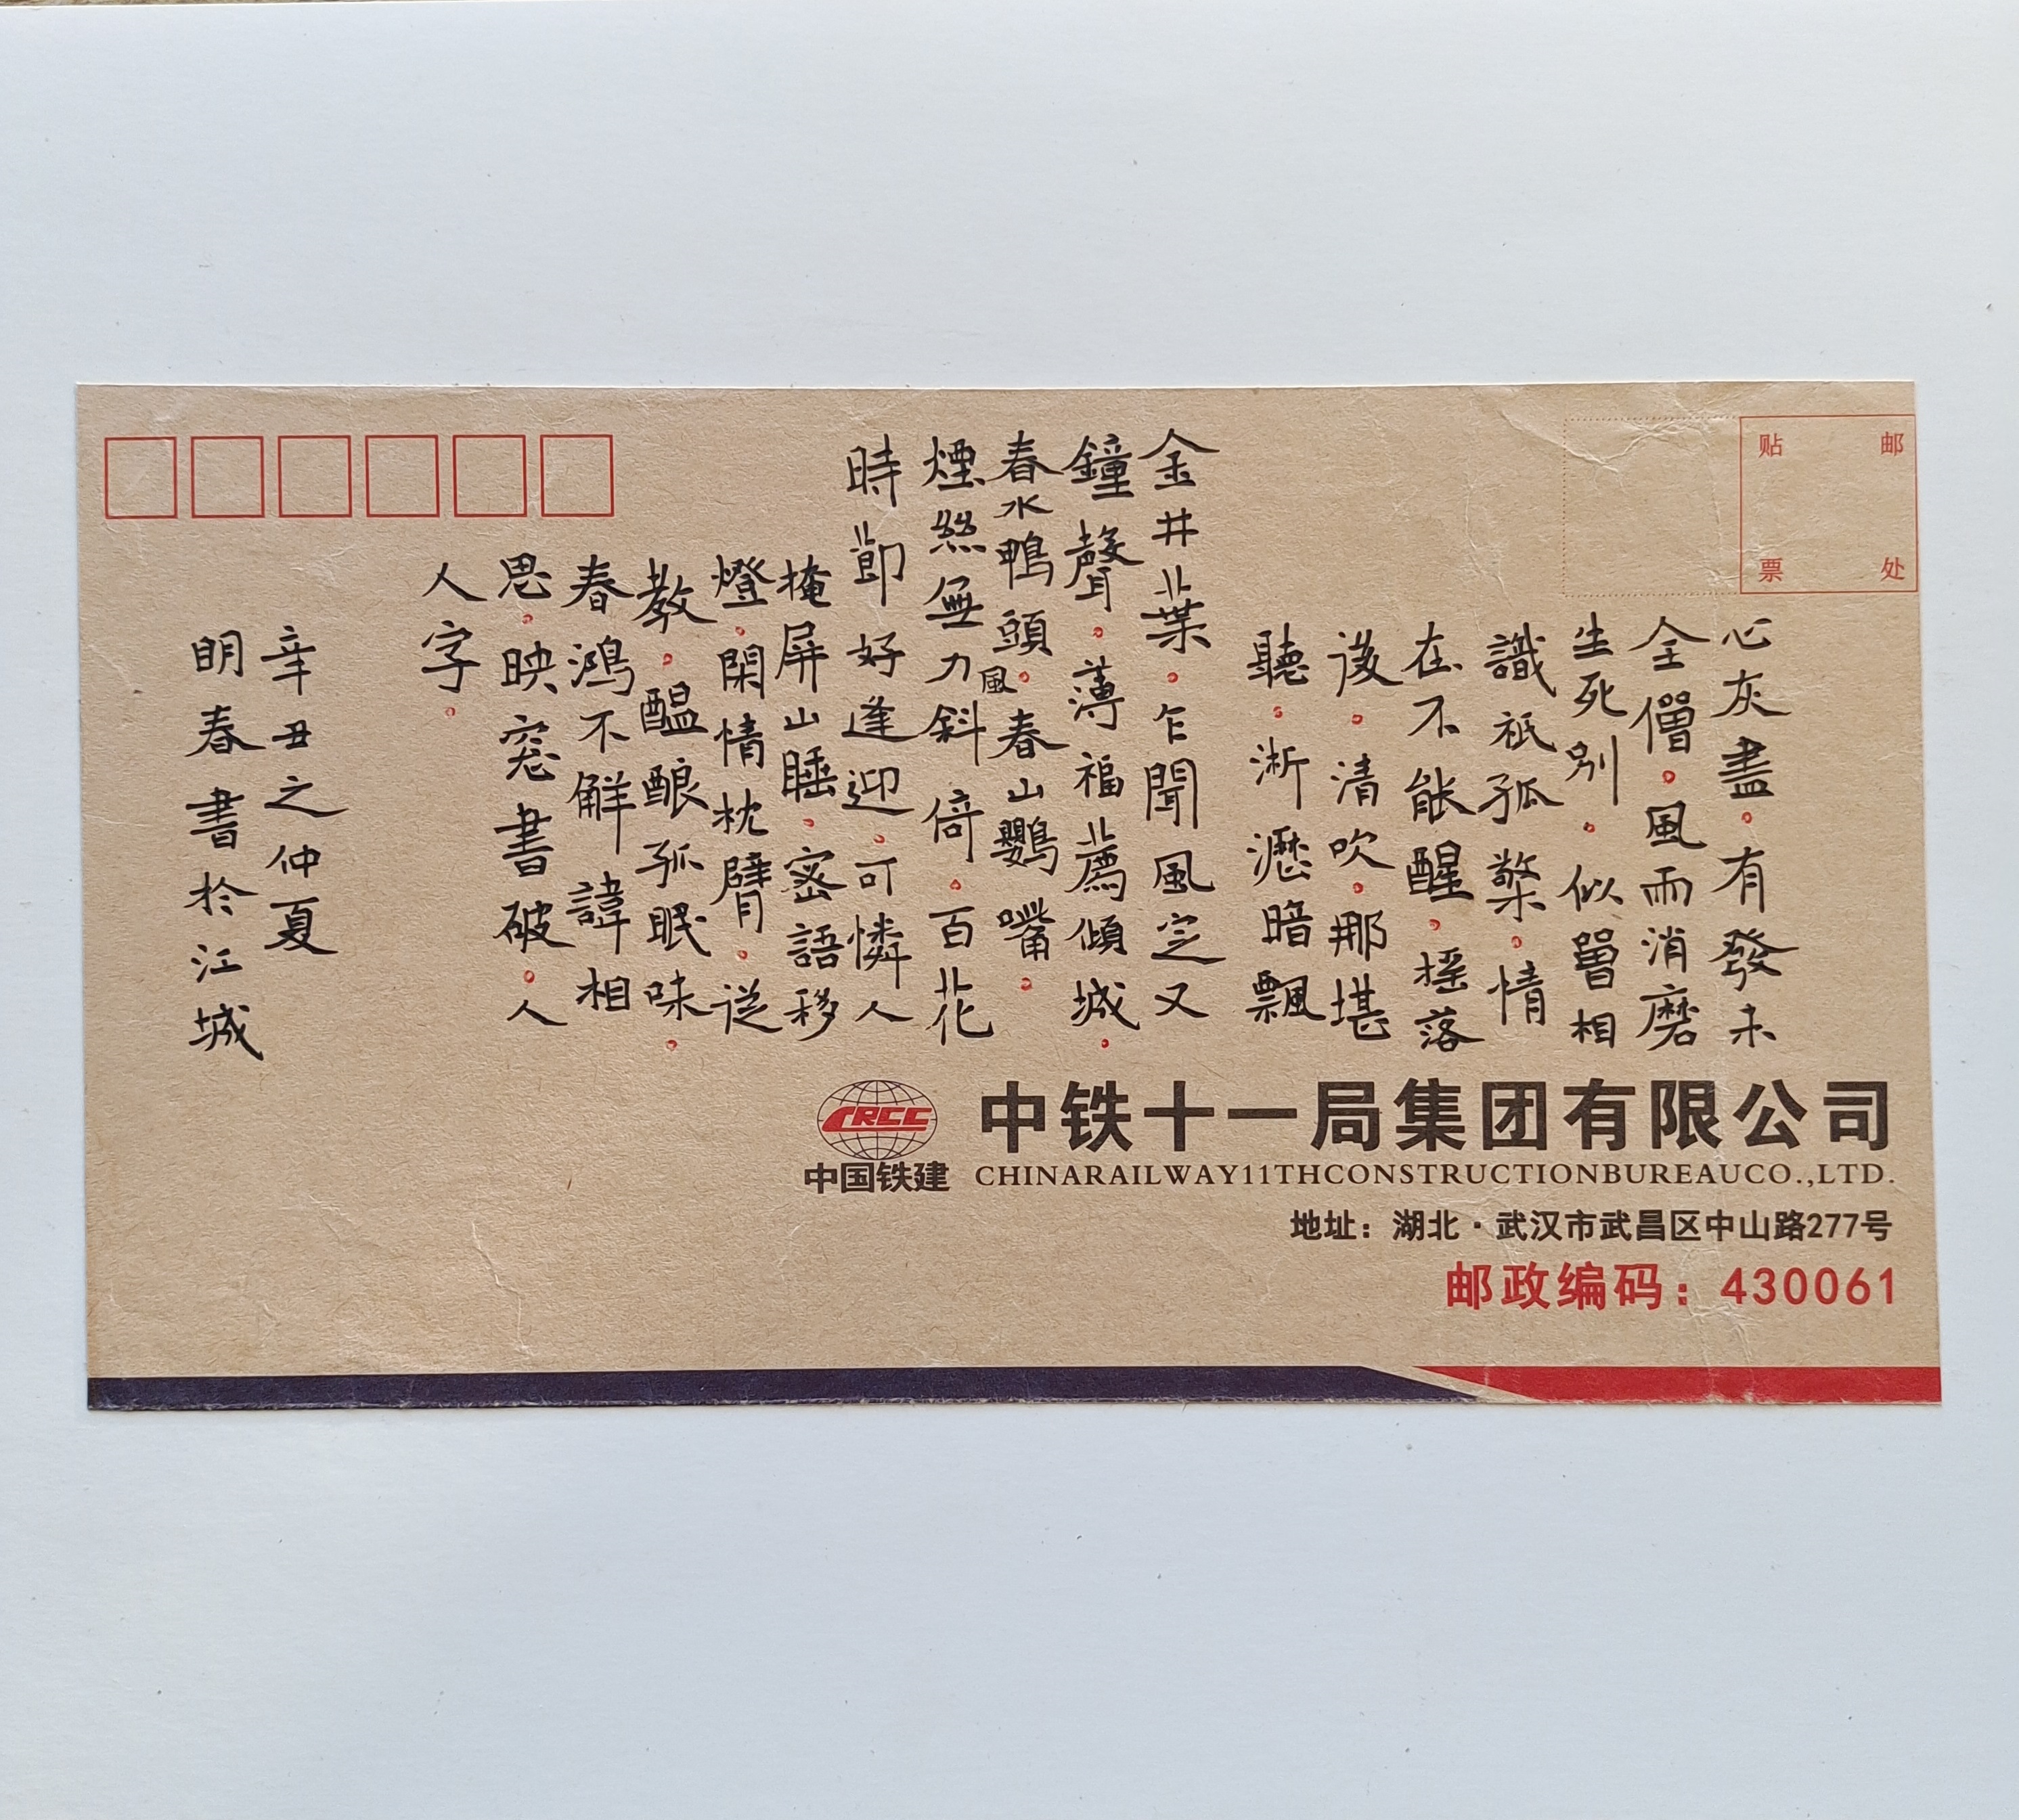 贴 邮
票 处
心灰盡。有發未
全僧。風雨消磨
生死别。似曾相
識祇孤檠。情
在不能醒。摇落
後。清吹。那堪
聽。淅瀝暗飄
金井葉。乍聞風定又
鐘聲。薄福薦傾城。
春水鴨頭。春山鸚嘴。
煙絲無力風斜倚。百花
時節好逢迎。可憐人
掩屏山睡。密語移
燈。閑情枕臂。從
教。醖酿孤眠味。
春鴻不解諱相
思。映窓書破。人
人字。
辛丑之仲夏
明春書於江城
CRCC
中国铁建
中铁十一局集团有限公司
CHINARAILWAY11THCONSTRUCTIONBUREAUCO.,LTD.
地址：湖北·武汉市武昌区中山路277号
邮政编码：430061